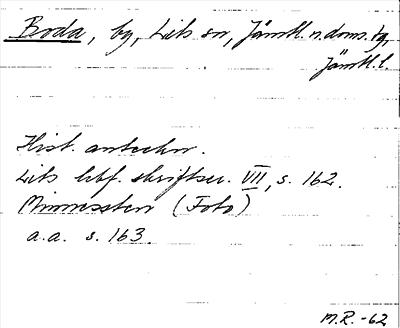 Boda, by, Lits sn, Jämtl. n. doms. tg,
Jämtl. l.
Hist. anteckn.
Lits hbf. skriftser. VII, s. 162.
Minnessten (Foto)
a.a. s. 163.
M.R. -62